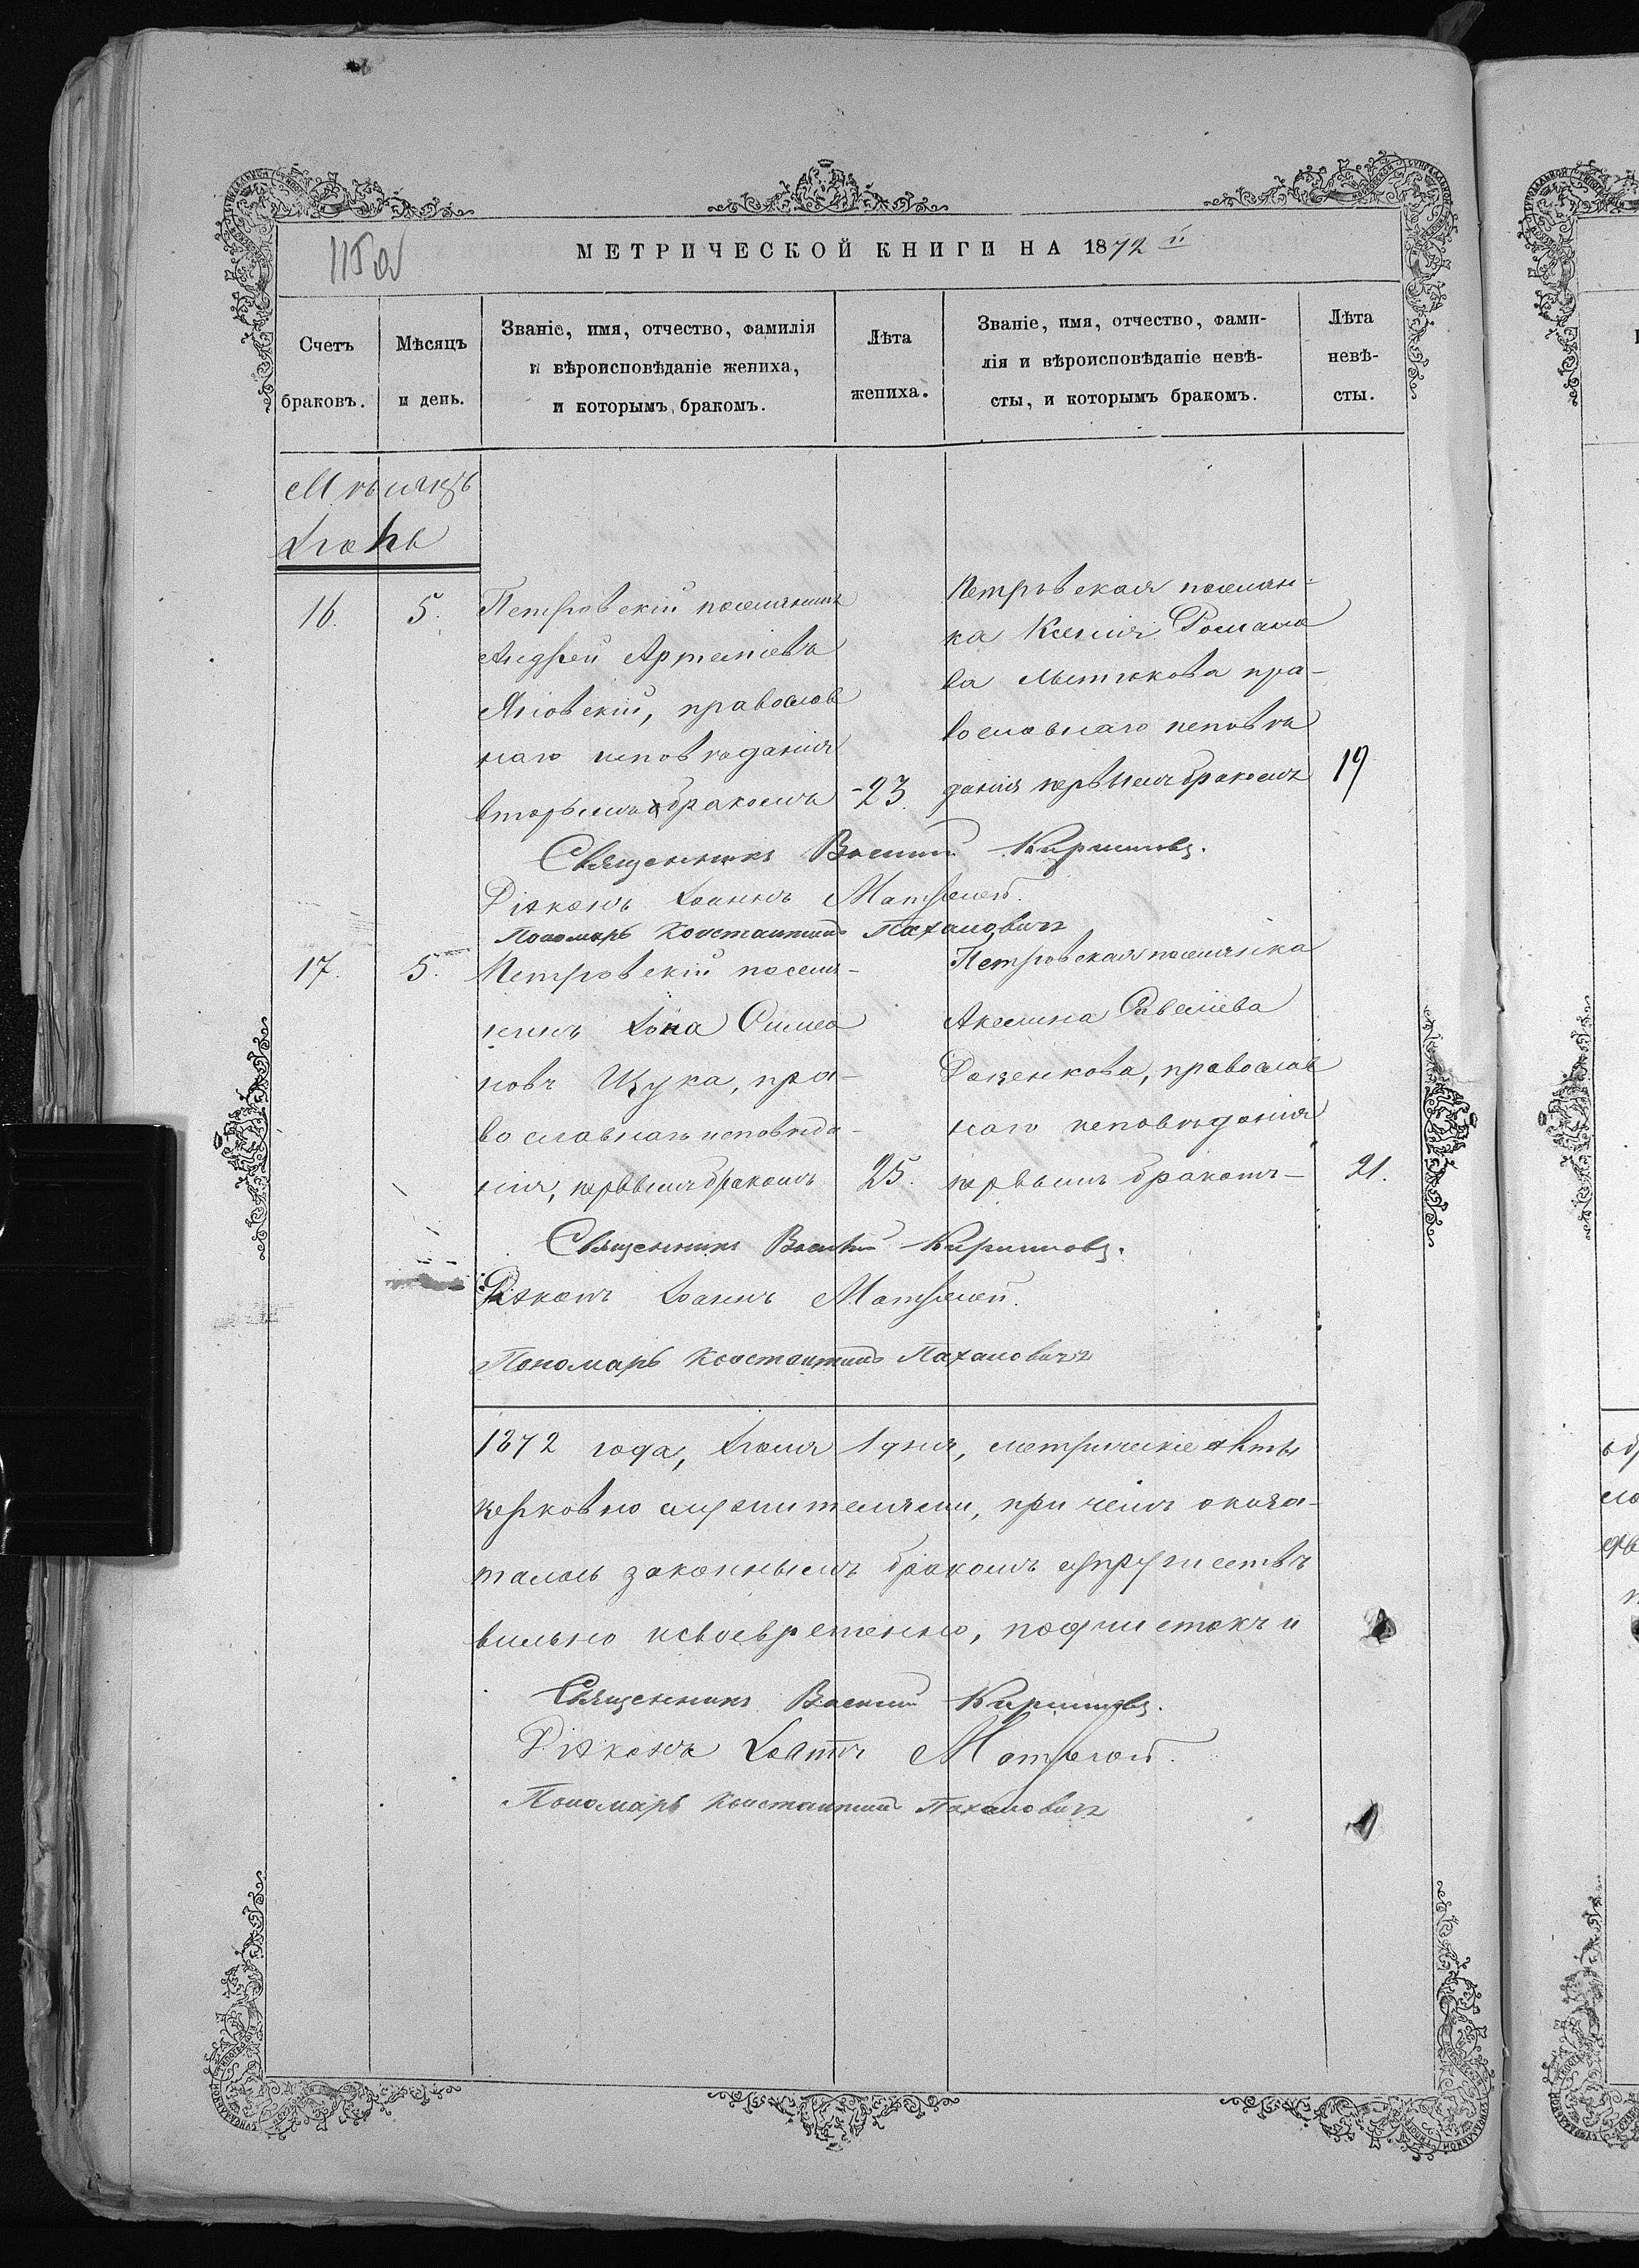 МЕТРИЧЕСКОЙ КНИГИ НА 1872й
Счетъ браковъ.
Мѣсяцъ и день.
Званіе, имя, отчество, фамилія
и вѣроисповѣданіе жениха,
и которымъ бракомъ.
Лѣта жениха.
Званіе, имя, отчество, фами-
лія и вѣроисповѣданіе невѣ-
сты, и которымъ бракомъ.
Лѣта невѣ-
сты.
Мѣсяцъ
16. 5. Петровскій поселянинъ
Андрей Артеміевъ
православ
наго исповѣданія
вторымъ бракомъ 23.
Петровская поселян-
ка Ксенія Романо
ва пра-
вославнаго исповѣ
данія первымъ бракомъ 19
Священникъ Василій
Діаконъ Іоаннъ
Пономарь Константинъ Пахаловичъ
17. 5. Петровскій поселя-
нинъ Іона Симео
новъ Щука, пра-
вославнаго исповѣда-
нія, первымъ бракомъ 25.
Петровская поселянка
Акелина Савеліева
православ
наго исповѣданія
первымъ бракомъ 21.
Священникъ Василій
Діаконъ Іоаннъ
Пономарь Константинъ Пахаловичъ
1872 года, 1 дня, метрическіе акты
церковно служителями, при чемъ оказа-
талось законнымъ бракомъ супружествъ
вильно и своевременно, подчистокъ и
Священникъ Василій
Діаконъ Іоаннъ
Пономарь Константинъ Пахаловичъ